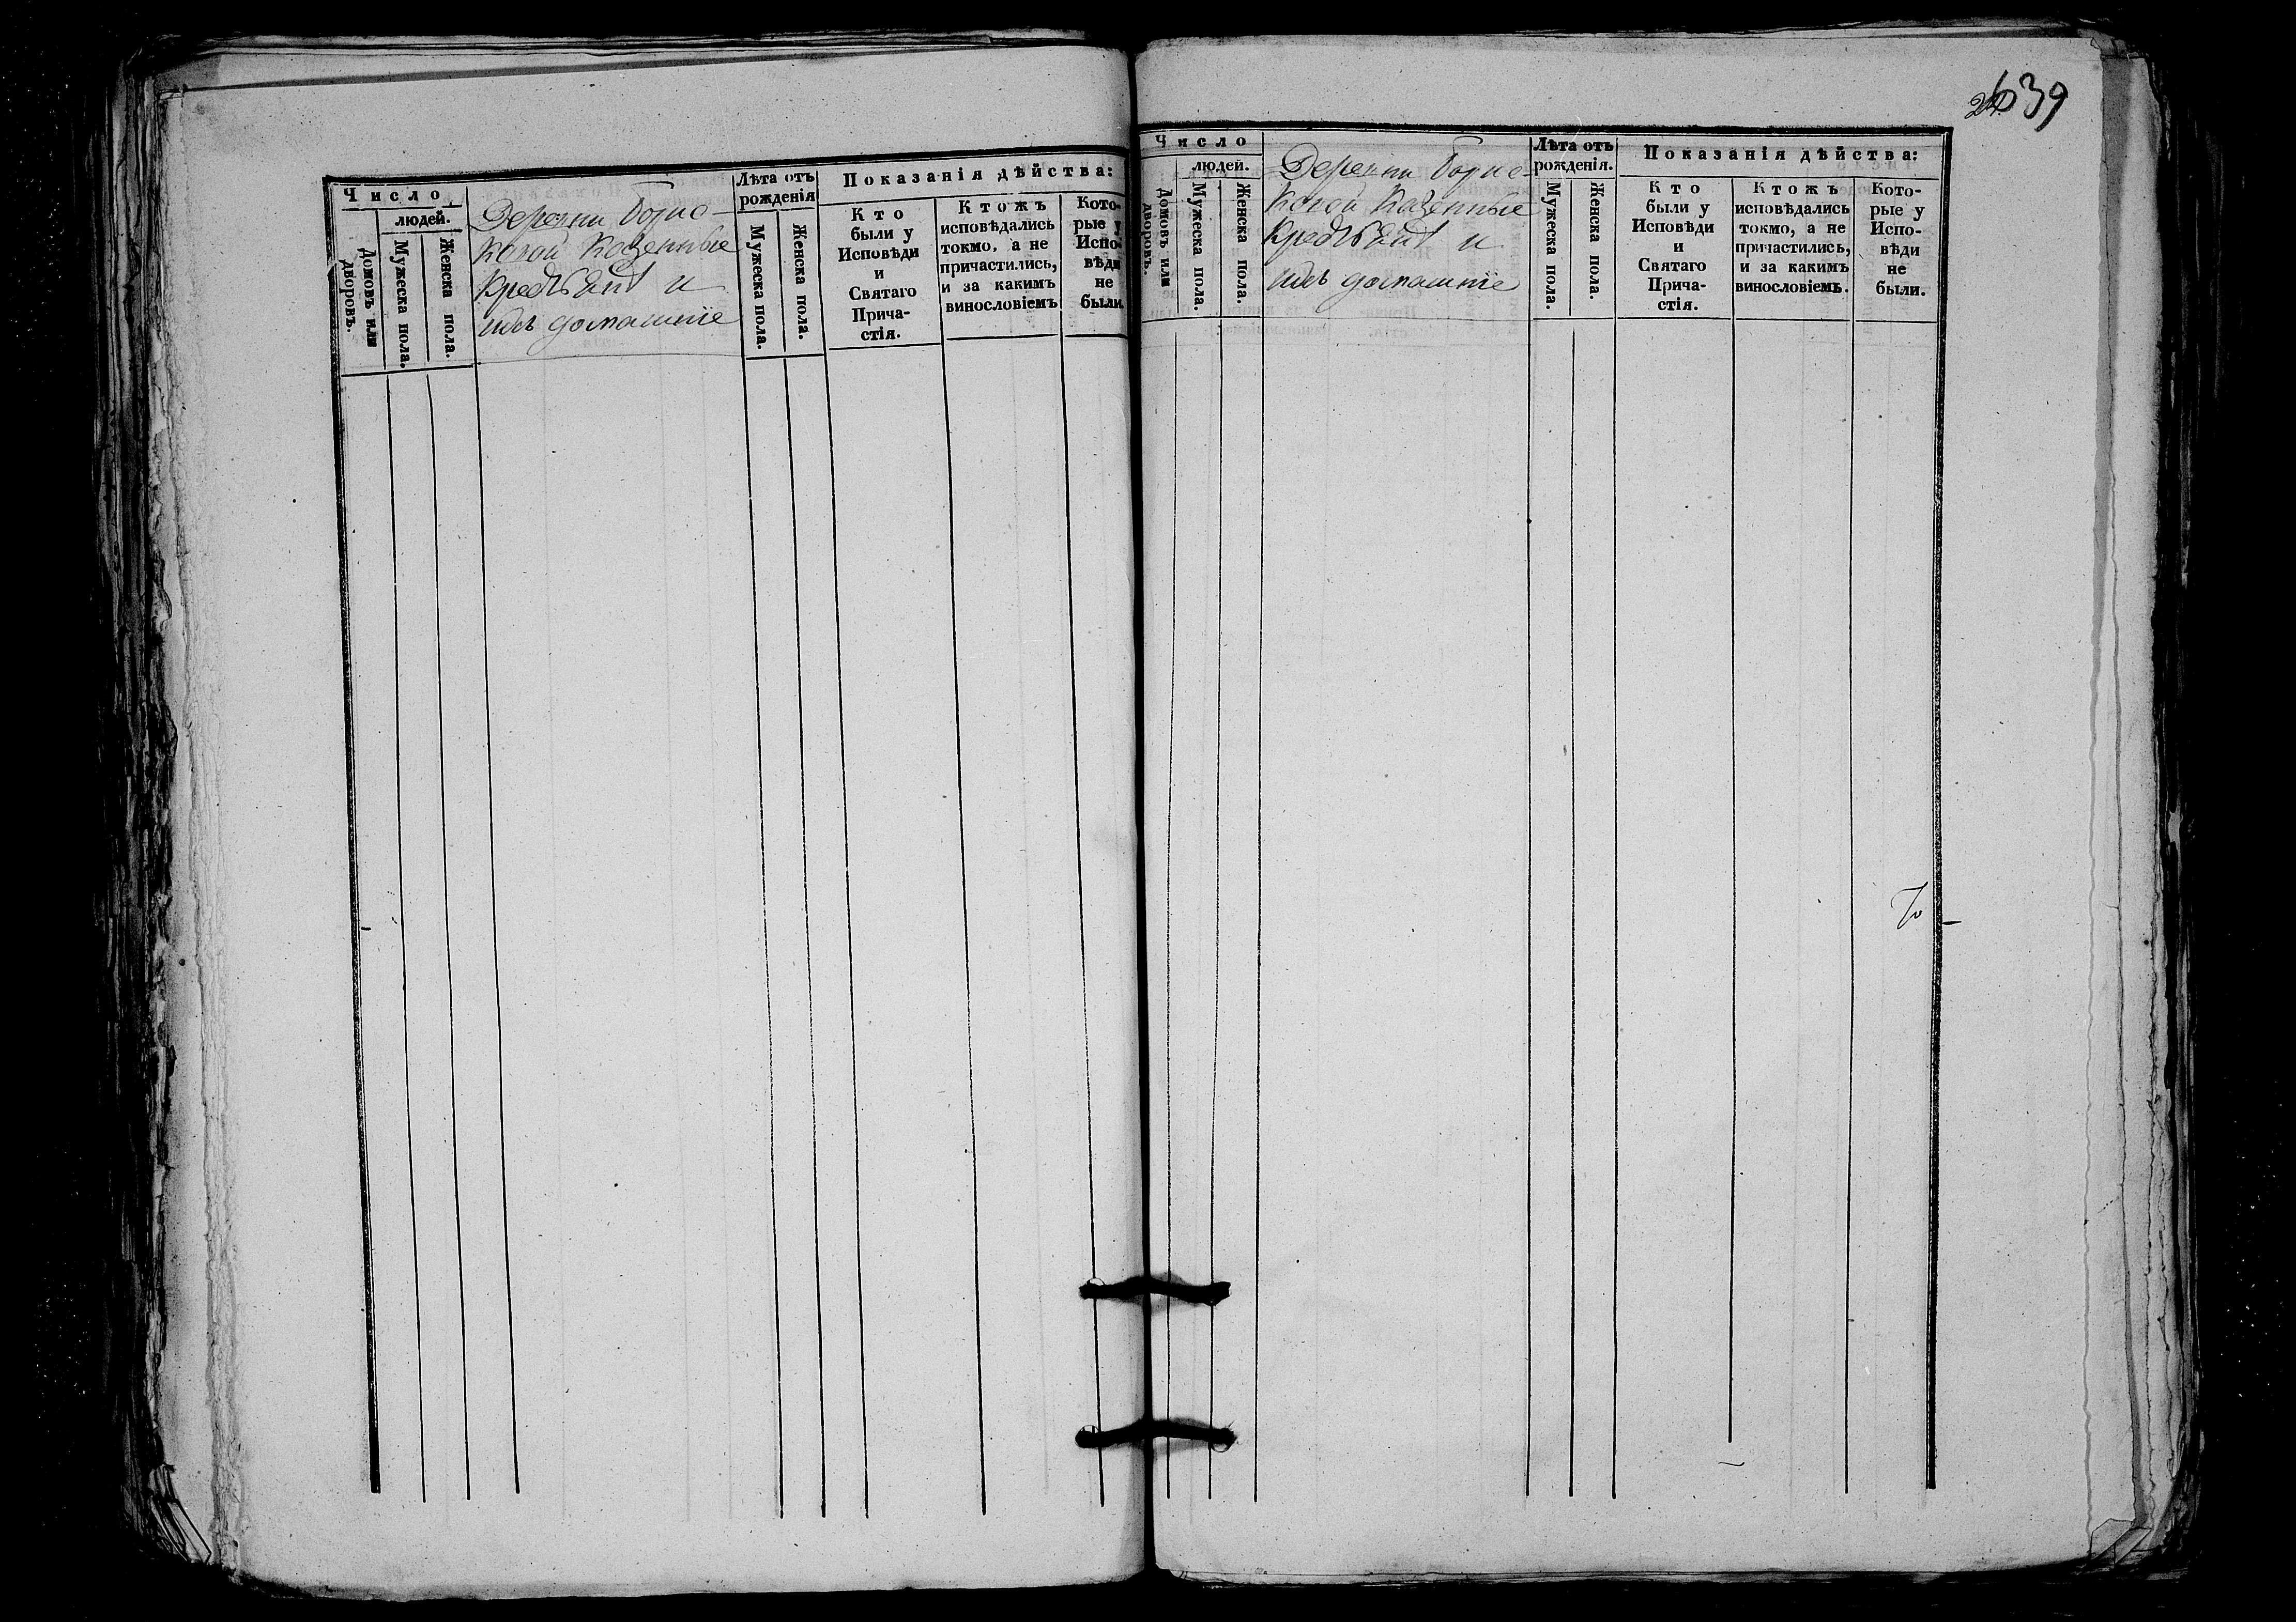 Число
людей.
Домовъ или дворовъ.
Мужеска пола.
Женска пола.
Деревни Борис-
ковой Казенные
Крестьяне и
ихъ домашніе
Лѣта отъ
рожденія
Мужеска пола.
Женска пола.
Показанія дѣйства:
Кто
были у
Исповѣди
и
Святаго
Прича-
стія.
Ктожъ
исповѣдались
токмо, а не
причастились,
и за какимъ
винословіемъ
Кото-
рые у
Испо-
вѣди
не
были.
639
Число
людей.
Домовъ или дворовъ.
Мужеска пола.
Женска пола.
Деревни Борис-
ковой Казенные
Крестьяне и
ихъ домашніе
Лѣта отъ
рожденія.
Мужеска пола.
Женска пола.
Показанія дѣйства:
Кто
были у
Исповѣди
и
Святаго
Прича-
стія.
Ктожъ
исповѣдались
токмо, а не
причастились,
и за какимъ
винословіемъ.
Кото-
рые у
Испо-
вѣди
не
были.